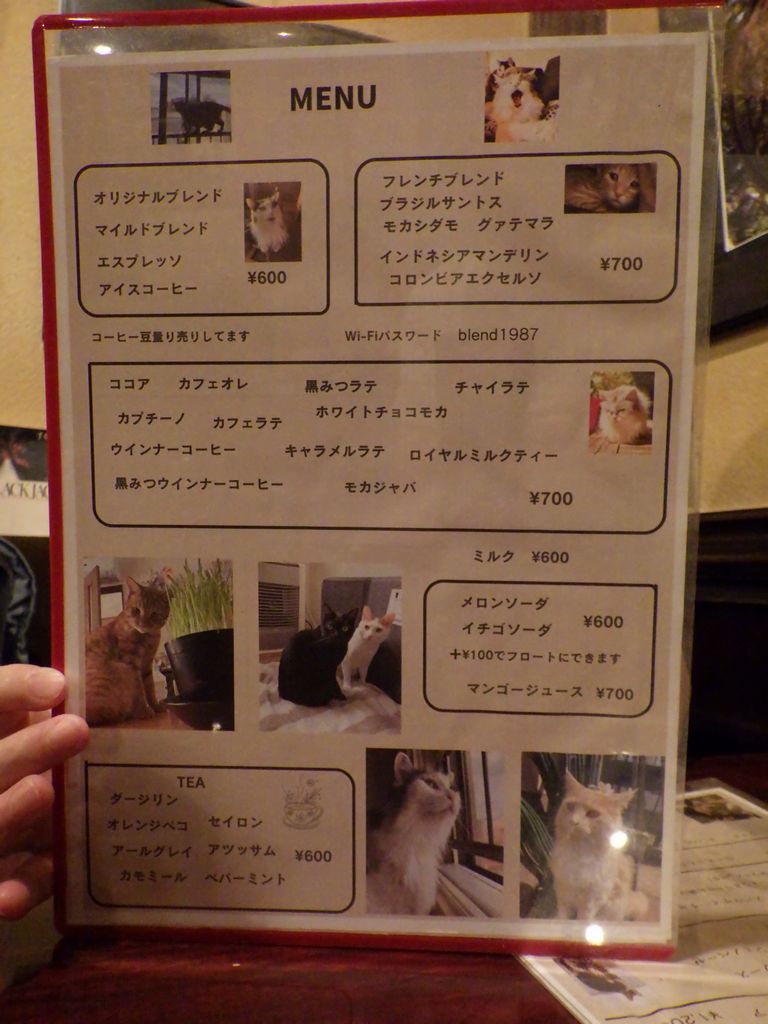 MENU
オリジナルブレンド
マイルドブレンド
エスプレッソ
アイスコーヒー
¥600
フレンチブレンド
ブラジルサントス
モカシダモ グァテマラ
インドネシアマンデリン
コロンビアエクセルソ
¥700
コーヒー豆量り売りしてます
Wi-Fiパスワード blend1987
ココア カフェオレ 黒みつラテ チャイラテ
カプチーノ カフェラテ ホワイトチョコモカ
ウインナーコーヒー キャラメルラテ ロイヤルミルクティー
黒みつウインナーコーヒー モカジャバ
¥700
ミルク ¥600
メロンソーダ
イチゴソーダ
¥600
+¥100でフロートにできます
マンゴージュース ¥700
TEA
ダージリン
オレンジペコ セイロン
アールグレイ アッッサム ¥600
カモミール ペパーミント